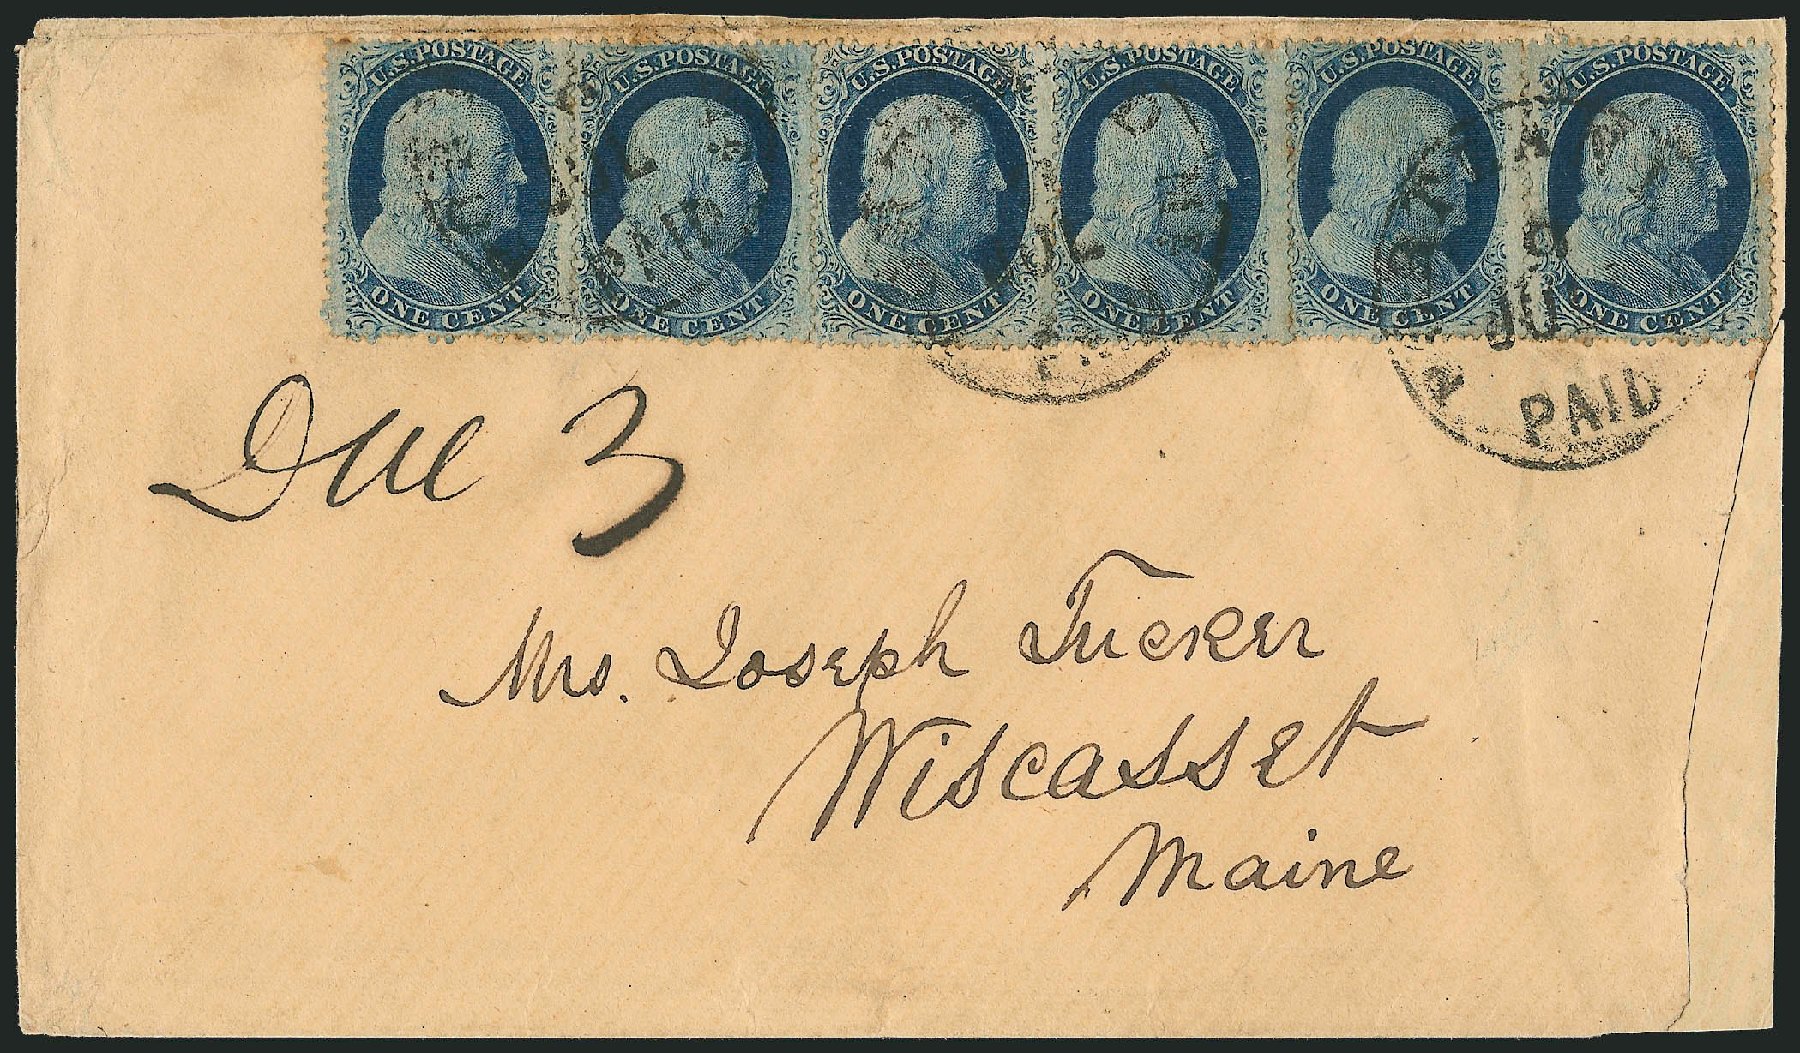 U.S. POSTAGE U.S. POSTAGE U.S. POSTAGE U.S. POSTAGE U.S. POSTAGE U.S. POSTAGE
ONE CENT ONE CENT ONE CENT ONE CENT ONE CENT ONE CENT
JUL
PAID
JUL
9
PAID
Due 3
Mrs. Joseph Tucker
Wiscasset
Maine